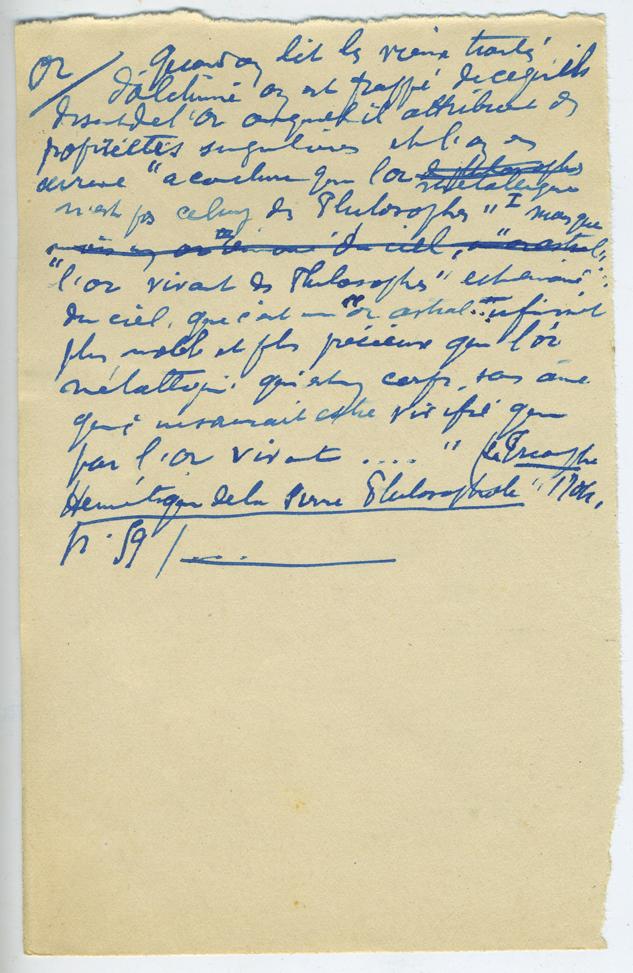 Or / Quand on lit les vieux traités
d'alchimie on est frappé de ce qu'ils
disent de l'or auquel il attribuent des
propriétés singulières et l'on en
arrive "a conclure que l'or des philosophes métallique
n'est pas celuy des Philosophes" I mais que
du ciel,
"l'or vivant des Philosophes" est
du ciel, que c'est un "or astral... infiniment
plus noble et plus précieux que l'or
métallique qui est un corps sans âme
qui ne saurait estre vivifié que
par l'or vivant .... " (Le Triomphe
Hermétique de la Pierre Philosophale"
p. 59 /